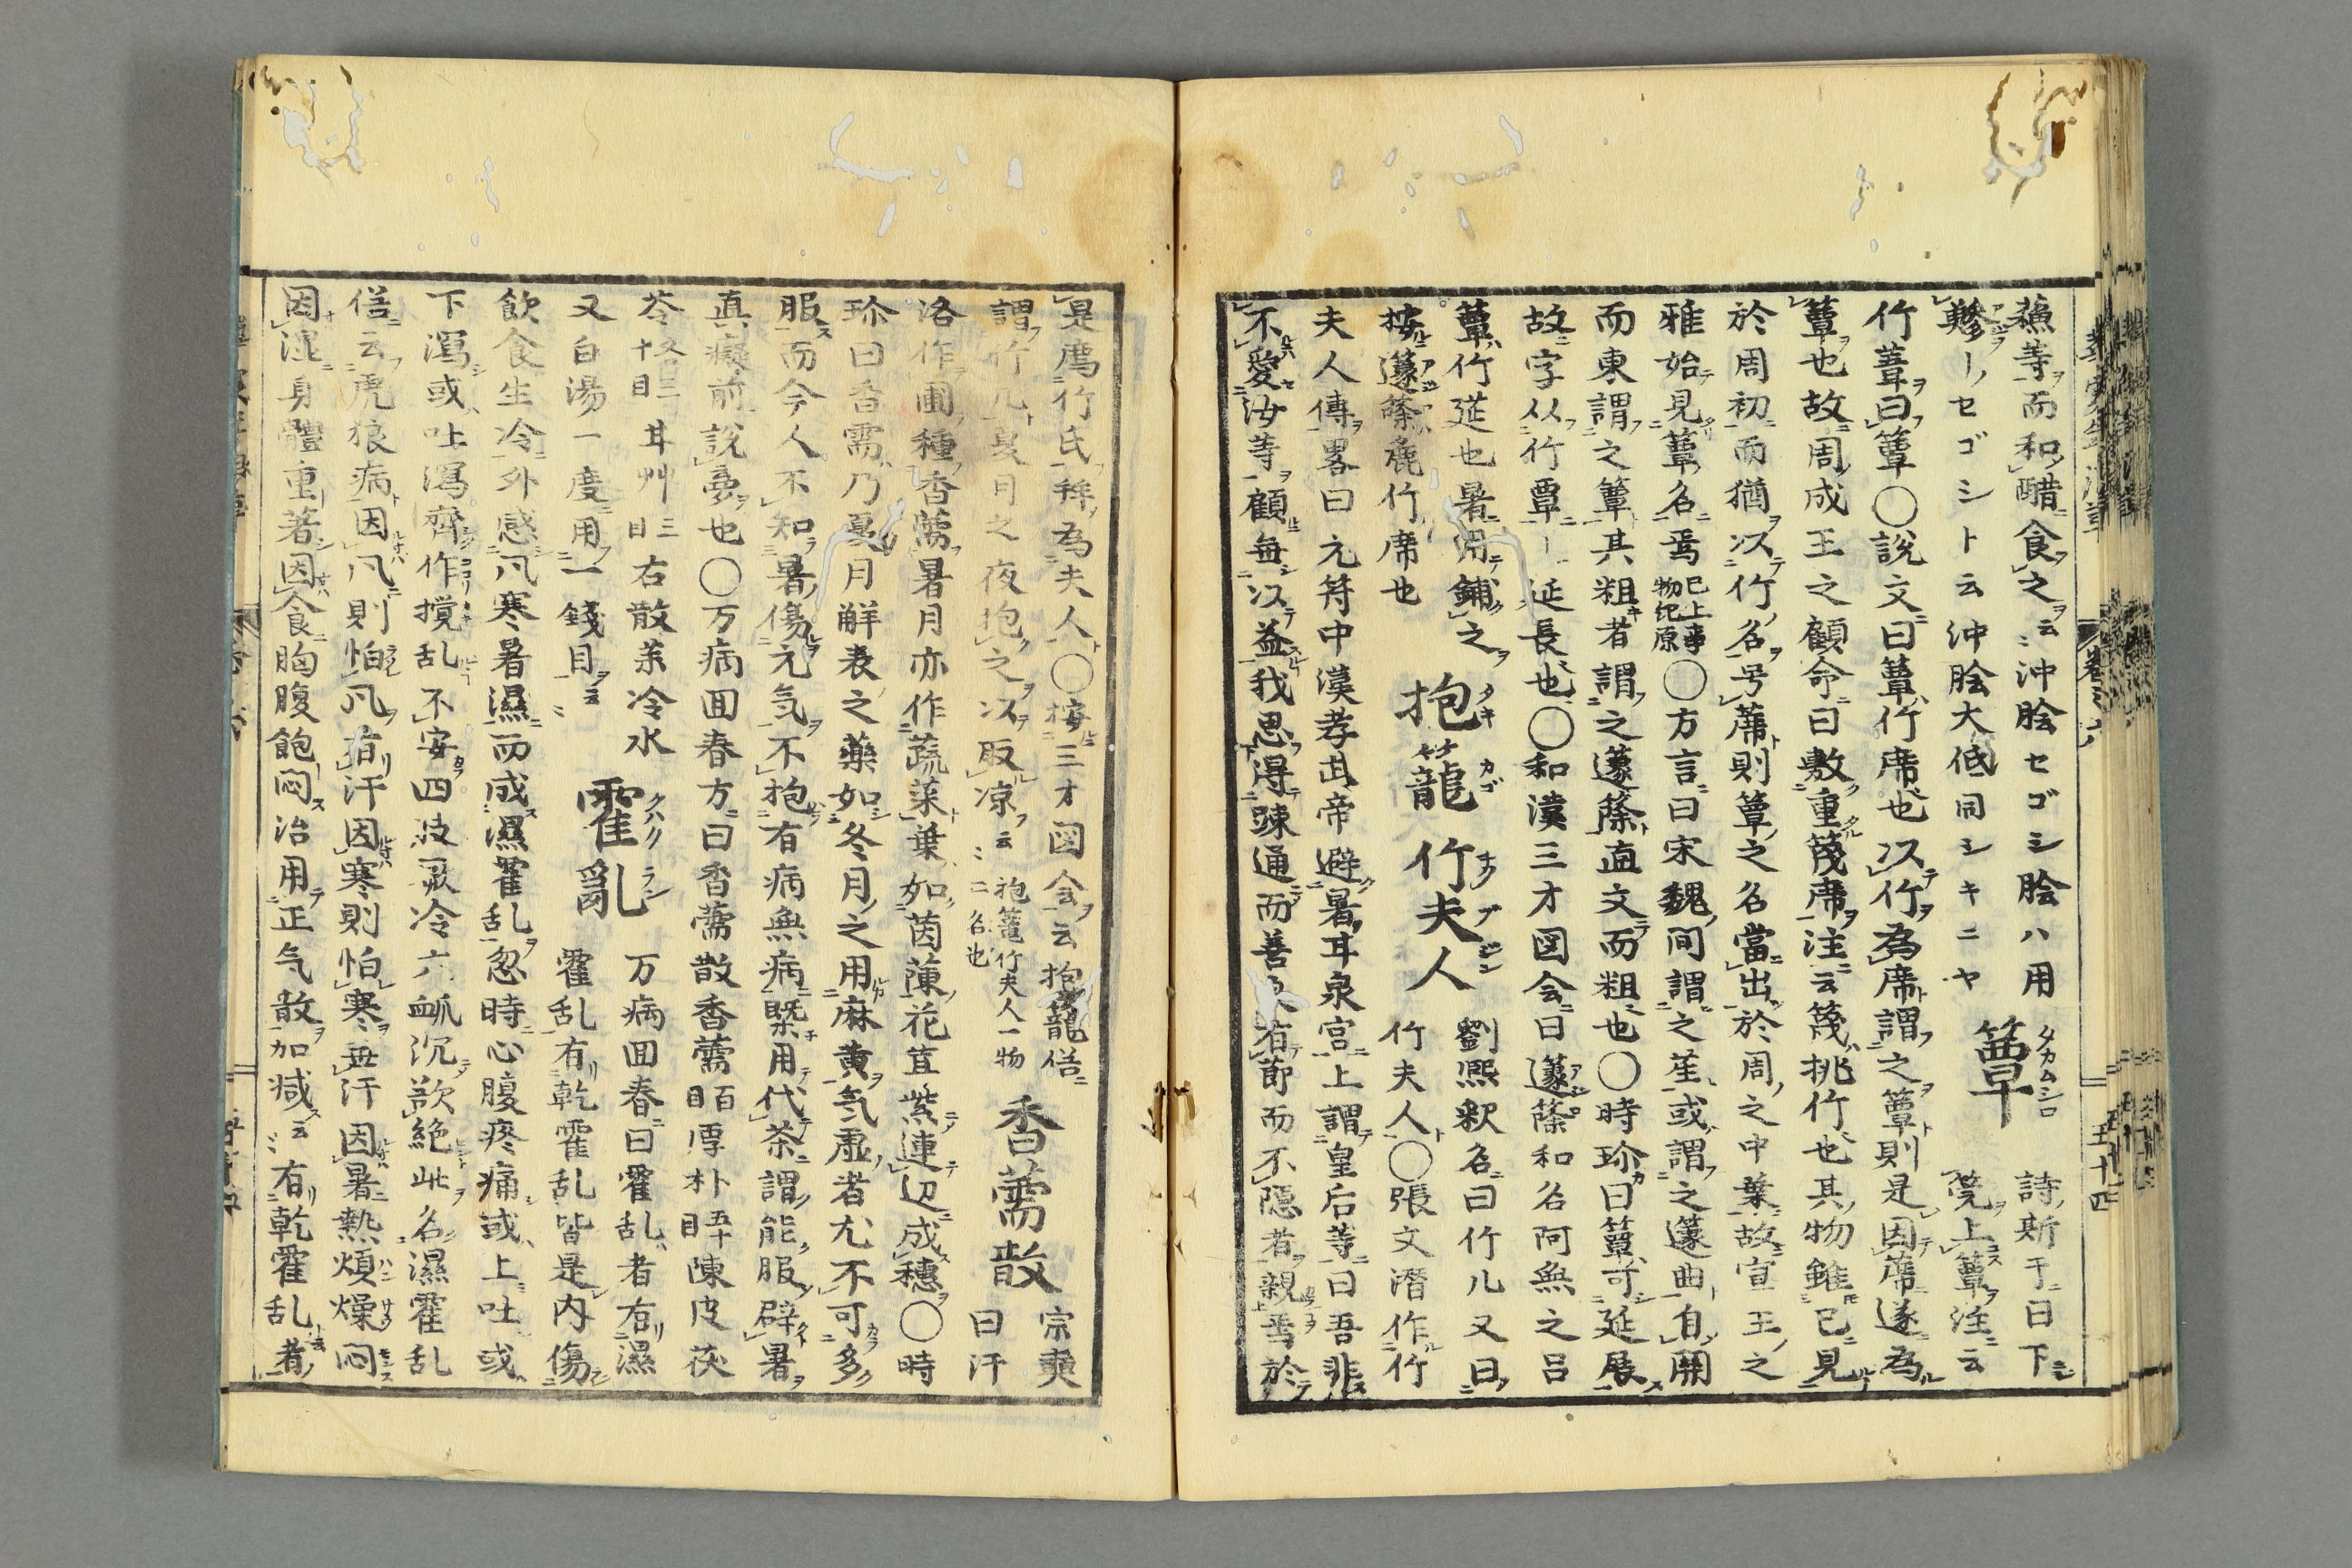 蘓等而和醋食之云〻沖膾セゴシ膾ハ用
鰺ーノセゴシト云沖膾大低同シキニヤ
簟 タカムシロ
詩斯干曰下
莞上簟注云
竹葦曰簟○説文曰簟竹席也以竹為席謂之簟則是因蓆遂為
簟也故周成王之顧命曰敷重篾席注云篾桃竹也其物雖已見
於周初而猶以竹名号蓆則簟之名當出於周之中葉故宣王之
雅始見簟名焉 已上事物紀原 ○方言曰宋魏间謂之笙或謂之籧曲自関
而東謂之簟其粗者謂之籧篨直文而粗也○時珍曰簟可延展
故字从竹覃ー延長也○和漢三才図会曰籧篨和名阿無之呂
簟竹莚也暑用鋪之
按籧篨麁竹席也
抱籠 タキカゴ 竹夫人 チクフジン
劉熙釈名曰竹几又曰
竹夫人○張文潜作竹
夫人傳畧曰元符中漢孝武帝避暑甘泉宮上謂皇后等曰吾非
不愛汝等顧無以益我思得疎通而善良有節而不隠者親焉於
是薦竹氏拜為夫人○按三才図会云抱籠俗
謂竹几夏月之夜抱之以取凉云〻 抱篭竹夫人一物二名也
香薷散
宗奭
曰汗
洛作圃種香薷暑月亦作蔬菜葉如茵蔯花茸紫連辺成穗○時
珍曰香薷乃夏月解表之藥如冬月之用麻黄気虚者尤不可多
服而今人不知暑傷元気不抱有病無病槩用代茶謂能服辟暑
真癡前説夢也○万病回春方曰香薷散香薷百目厚朴五十目陳皮茯
苓各三十目甘艸三目右散茶冷水
又白湯一度用一錢目云〻
霍亂 クハクラン
万病回春曰霍乱者有濕
霍乱有乾霍乱皆是内傷
飲食生冷外感凡寒暑濕而成濕霍乱忽時心腹疼痛或上吐或
下瀉或吐瀉齊作撹乱不安四肢厥冷六衇沉欲絶此名濕霍乱
俗云虎狼病因凡則怕凡有汗因寒則怕寒無汗因暑熱煩燥悶
因湿身體重著因食胸腹飽悶治用正気散加減云〻有乾霍乱者